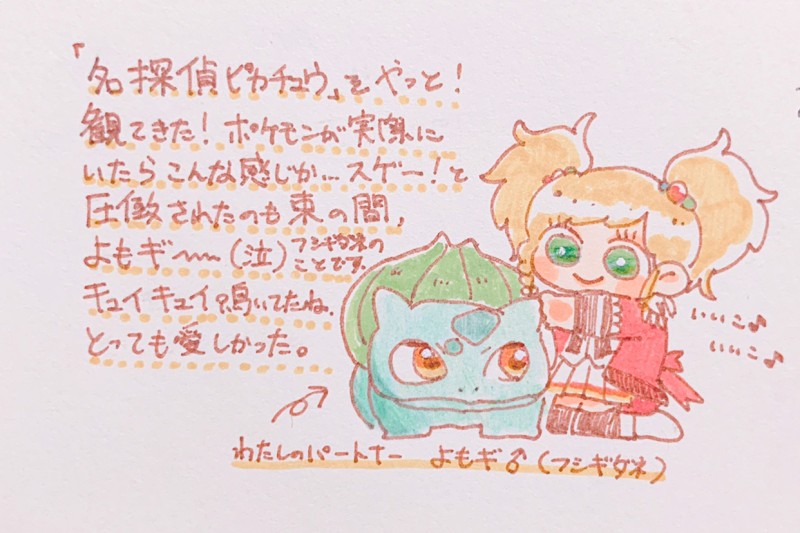 「名探偵ピカチュウ」をやっと！
観てきた！ポケモンが実際に
いたらこんな感じか…スゲー！と
圧倒されたのも束の間、
よもギ〜〜（泣）フシギダネの
ことです。
キュイキュイ鳴いてたね、
とっても愛しかった。
いいこ♪
いいこ♪
わたしのパートナー よもギ♂（フシギダネ）